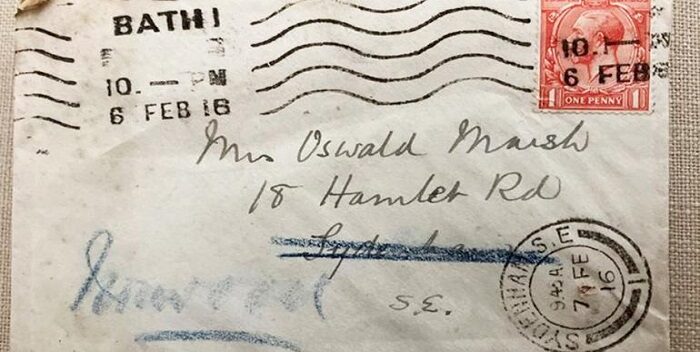 BATH 1
10. — PM
6 FEB 16
10.
6 FEB
ONE PENNY
1 1
Mrs Oswald Marsh
18 Hamlet Rd
Sydenham
Norwood
S.E.
SYDENHAM S.E
945 A
7 FE
16